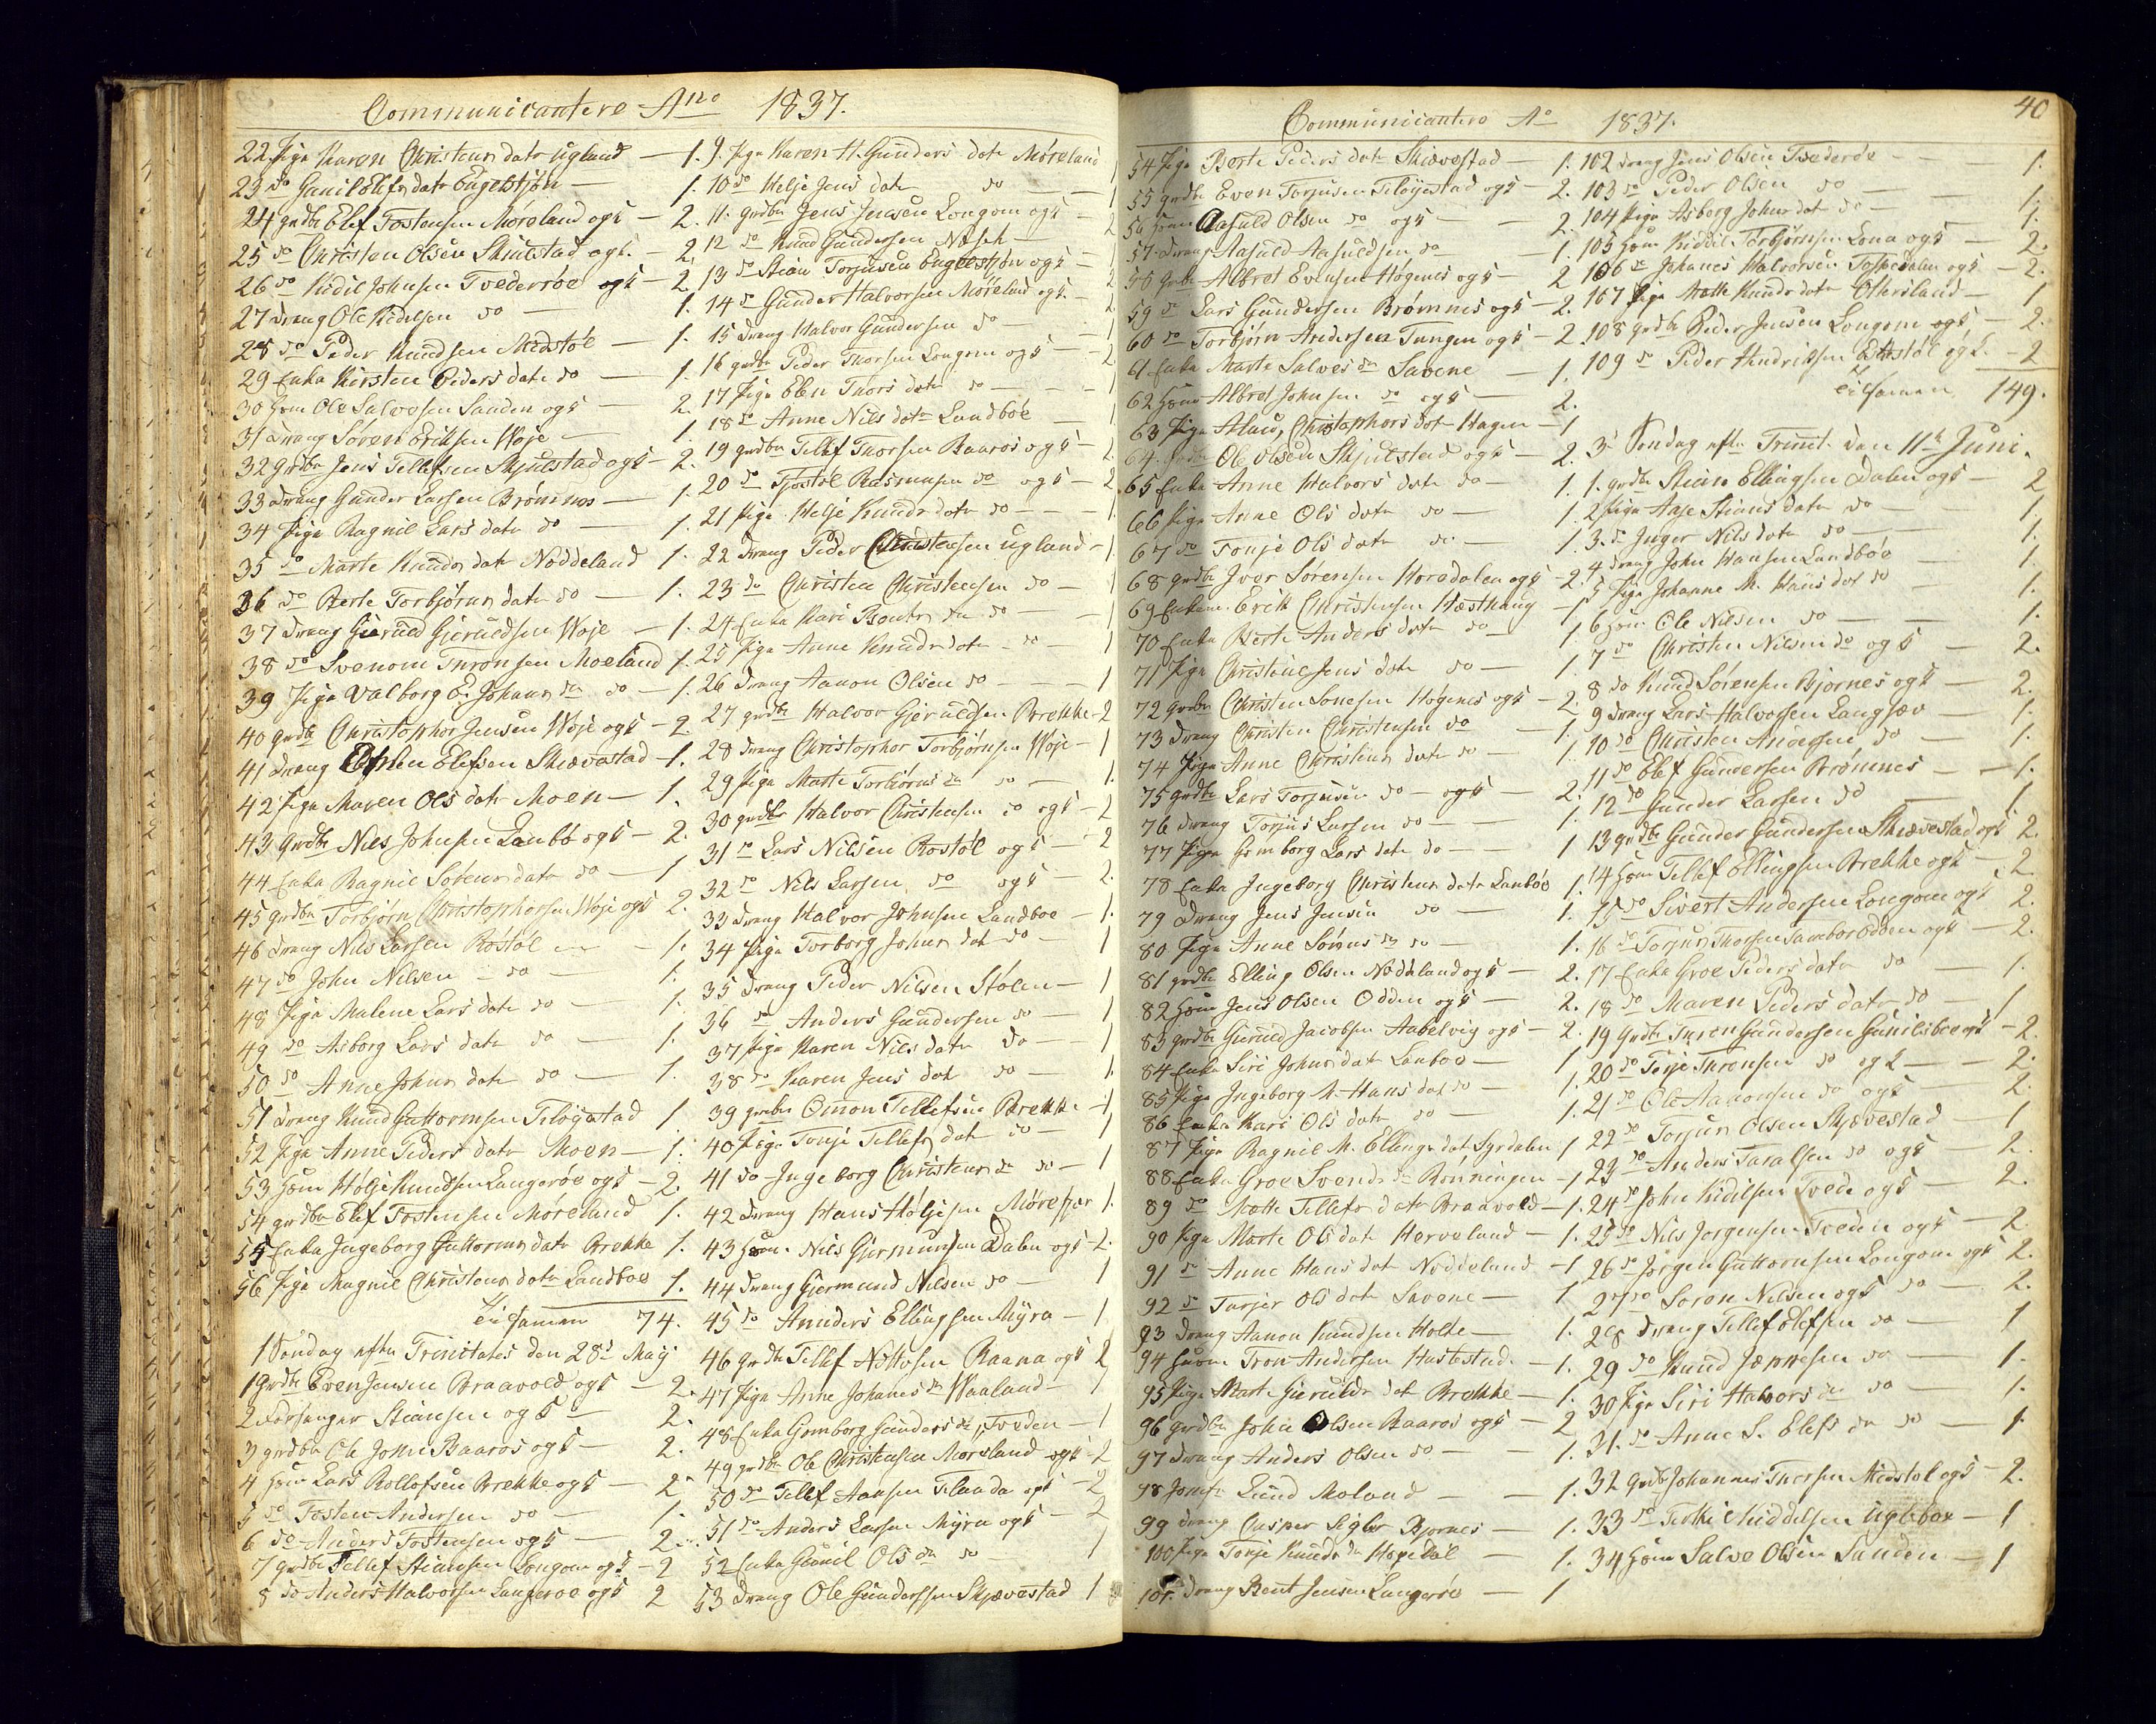 Communicantere Ano 1837.
22 Pige Karen Christens datr Ugland — 1.
23 do Gunil Elefs datr Engelstjøn — 1.
24 grdbr Elef Tostensen Møreland ogk — 2.
25 do Christen Olsen ogk. — 2.
26 do Kidil Johnsen Tvederøe ogk — 2
27 Dreng Ole Kidelsen do — 1.
28 do Peder Knudsen Midstøl — 1.
29 Enke Kirsten Peders datr do — 1.
30 Huusm Ole Salvesen Sanden ogk 2.
31 Dreng Søren Eriksen Woje — 1.
32 grdbr Jens Tellefsen Skjulestad ogk — 2.
33 Dreng Gunder Larsen Brømnes — 1.
34 Pige Ragnil Lars datr do — 1.
35 do Marte Knuds datr Noddeland 1.
36 do Berte Torbjørns datr do — 1.
37 Dreng Gieruld Gieruldsen Woje — 1.
38 do Svenom Tronsen Moeland 1.
39 Pige Valborg E. Johans dr do — 1.
40 grdbr Christopher Jensen Woje ogk — 2.
41 Dreng Elefsen Skiævestad — 1.
42 Pige Maren Ols datr Moen — 1.
43 grdbr Nils Johnsen Lanbo ogk — 2.
44 Enke Ragnil Sørens datr do — 1
45 grdbr Torbjørn Christophersen Woje ogk 2.
46 Dreng Nils Larsen Røstøl — 1.
47 do John Nilsen — do — 1.
48 Pige Malene Lars datr do — 1.
49 do Asborg Lars datr do — 1.
50 do Anne Johns datr do — 1.
51 Dreng Knud Guttormsen Teløgstad 1.
52 Pige Anne Peders datr Moen — 1.
53 Huusm Hølje Knudsen Langerøe ogk — 2.
54 grdbr Elef Tostensen Møreland 1.
55 Enke Ingeborg Guttorms datr Brekke 1.
56 Pige Magnil Christens datr Landboe 1.
Tilsamen 74.
1 Søndag efter Trinitatis den 28de May
1 Grdbr Even Jensen Braavold ogk — 2.
2 Forsanger Stiansen ogk — 2.
3 grdbr Ole John Baaros ogk — 2.
4 Huusm Lars Rollefsen Brekke ogk — 2
5 do Tosten Andersen do — 1.
6 do Anders Tostensen ogk — 2.
7 grdbr Tellef Stiansen Longom ogk — 2
8 do Anders Halvorsen Langeroe ogk 2
9. Pige Karen H. Gunders datr Møreland 1
10 do Helje Jens datr do — 1
11. grdbr Jens Jensen Longom ogk — 2
12 do Knud Gundersen Næseh — 1
13 do Stian Torjusen Engelstjøn ogk —
14 do Gunder Halvorsen Møreland ogk — 2
15 Dreng Halvor Gundersen do — 1
16 grdbr Peder Thorsen Longom ogk — 2
17 Pige Elen Thors datr do — 1
18 do Anne Nils datr Landboe 1
19 grdbr Tellef Thorsen Baaros ogk — 2
20 do Tjøstøl Rasmusen do ogk — 2
21 Pige Helje Knuds datr do — 1.
22 Dreng Peder Christensen Ugland — 1.
23 do Christen Christensen do — 1
24 Enke Kari Bents dr do — 1
25 Pige Anne Knuds datr do — 1
26 Dreng Aanon Olsen do — 1
27 grdbr Halvor Gieruldsen Brekke — 2
28 Dreng Christopher Torbjørnsen Woje — 1
29 Pige Marte Torbiørns dr do — 1.
30 grdbr Halvor Christensen do ogk — 2
31 do Lars Nilsen Rostøl ogk — 2
32 do Nils Larsen do ogk — 2.
33 Dreng Halvor Johnsen Landboe — 1.
34 Pige Torborg Johns dat do — 1
35 Dreng Peder Nilsen Stølen — 1
36 do Anders Gundersen do — 1
37 Pige Karen Nils datr do — 1
38 do Karen Jens dat do — 1.
39 grdbr Omon Tellefsen Brekke — 1
40 Pige Tonje Tellefs dat do — 1
41 do Ingeborg Christens dr do — 1
42 Dreng Hans Høljesen Morefjær 1.
43 Huusm. Nils Gjermunsen Dalen ogk — 2.
44 Dreng Gjermund Nilsen do — 1
45 do Anders Ellingsen Myra — 1
46 grdbr Tellef Nottosen Raana ogk 2
47 Pige Anne Johanes dr Waaland — 1
48 Enke Gomborg Gunders dr, Tveden — 1
49 grdbr Ole Christensen Moreland ogk — 2
50 do Tellef Aansen ogk — 2
51 do Anders Larsen Myra ogk — 2
52 Enke Gunil Ols dr do 1
53 Dreng Ole Gunderssen Skjævestad 1
Communicantere Ao 1837.
40
54 Pige Berte Peders datr Skiævestad — 1.
55 grdbr Even Torjusen Teløgestad ogk — 2.
56 Huusm Aasuld Olsen do ogk — 2.
57 Dreng Aasuld Aasuldsen do — 1.
58 grdbr Albret Evensen Høgenes ogk — 2
59 do Lars Gundersen Brømnes ogk — 2.
60 do Torbjørn Andersen Tangen ogk — 2.
61 Enke Marte Salves dr Savene — 1.
62 Huusm Albret Johnsen do ogk — 2.
63 Pige Christophers dat Hagen — 1
64. grdbr Ole Olsen Skjulestad ogk — 2.
65 Enke Anne Halvors datr do — 1.
66 Pige Anne Ols datr do — 1.
67 do Tonje Ols datr do — 1
68 grdbr Iver Sørensen Horedalen ogk — 2.
69 Enkem. Erik Christensen Hæsthaug — 1
70 Enke Berte Anders datr do — 1
71 Pige Christene Jens datr do — 1.
72 grdbr Christen Høgenes ogk — 2.
73 Dreng Christen Christensen do — 1.
74 Pige Anne Christens datr do — 1.
75 grdbr Lars Torjusen do — ogk — 2.
76 Dreng Torjus Larsen do — 1.
77 Pige Gomborg Lars datr do — 1
78 Enke Ingeborg Christens datr Lanboe 1.
79 Dreng Jens Jensen do — 1.
80 Pige Anne Sørens dr do — 1.
81 grdbr Elling Olsen Noddeland ogk — 2.
82 Huusm Jens Olsen Odden ogk — 2.
83 grdbr Gieruld Jacobsen Aabelvig ogk — 2.
84 Enke Siri Johns dat Lanboe — 1
85 Pige Ingeborg M. Hans dat do — 1.
86 Enke Kari Ols datr do — 1.
87 Pige Ragnil M. Ellings dat Syrdalen 1
88 Enke Groe Svends dr Rønningen — 1
89 do Mette Tellefs datr Braavold — 1.
90 Pige Marte Ols datr Herveland — 1.
91 do Anne Hans dat Noddeland — 1
92 do Tarjer Ols dat Savene — 1
93 Dreng Aanon Knudsen Holte — 1.
94 Huusm. Tron Andersen Hustestad — 1.
95 Pige Marte Gierulds dat Brekke — 1.
96 grdbr John Olsen Baaros ogk — 2
97 Dreng Anders Olsen do — 1.
98 Jomfr Lund Moland — 1.
99 Dreng Casper Segler Bjornes — 1.
100 Pige Tonje Knuds dr Hopedal — 1.
101. Dreng Bent Jensen Langerøe — 1
102 Dreng Jens Olsen Tvederøe — 1.
103 do Peder Olsen do — 1.
104 Pige Asborg Johns dat do — 1.
105 Huusm Kiddil Torbjørnsen Lona ogk — 2.
106 do Johanes Halvorsen ogk — 2.
107 Pige Mette Knuds datr Ottersland — 1
108 grdbr Peder Jensen Longom ogk — 2.
109 do Peder Hendriksen ogk. — 2
Tilsamen 149.
3de Søndag efter Trinit. den 11te Juni.
1. grdbr Stian Ellingsen Dalen ogk — 2
2 Pige Aase Stians datr do — 1.
3. do Inger Nils datr do — 1.
4 Dreng John Hansen Landbøe 1.
5 Pige Johanne M. Hans dat do 1.
6 Huusm Ole Nilsen do — 1.
7 do Christen Nilsen do ogk — 2.
8 do Knud Sørensen Bjornes ogk — 2.
9 Dreng Lars Halvorsen Langsæv — 1.
10 do Christen Andersen do — 1.
11 do Elef Gundersen Brømnes — 1.
12 do Gunder Larsen do 1
13 grdbr Gunder Gundersen Skiævestad ogk 2.
14 Huusm Tellef Ellingsen Brekke ogk — 2
15 do Sivert Andersen Longom ogk 2.
16 do Torjus Thorsen Samborodden ogk — 2.
17 Enke Groe Peders datr do — 1.
18 do Maren Peders datr do — 1
19 Grdbr Tron Gundersen Gunilsboe ogk — 2.
20 do Terje Tronsen do ogk — 2.
21 do Ole Aanonsen do ogk — 2
22 do Torjus Olsen Skjævestad 1
23 do Anders Taralsen do ogk — 2.
24 do John Kidilsen Tvede ogk — 2.
25 do Nils Jorgensen Tveden ogk — 2
26 do Jørgen Guttormsen Longom ogk 2.
27 do Soren Nilsen ogk do — 2.
28 Dreng Tellef Elefsen do — 1
29 do Knud Jeppesen do — 1.
30 Pige Siri Halvors dr do — 1.
31. do Anne S. Elefs dr do — 1
32 grdbr Johannes Thorsen Midstøl ogk — 2.
33 do Terkil Kiddelsen Ugleboe — 1
34 Huusm Salve Olsen Sanden — 1